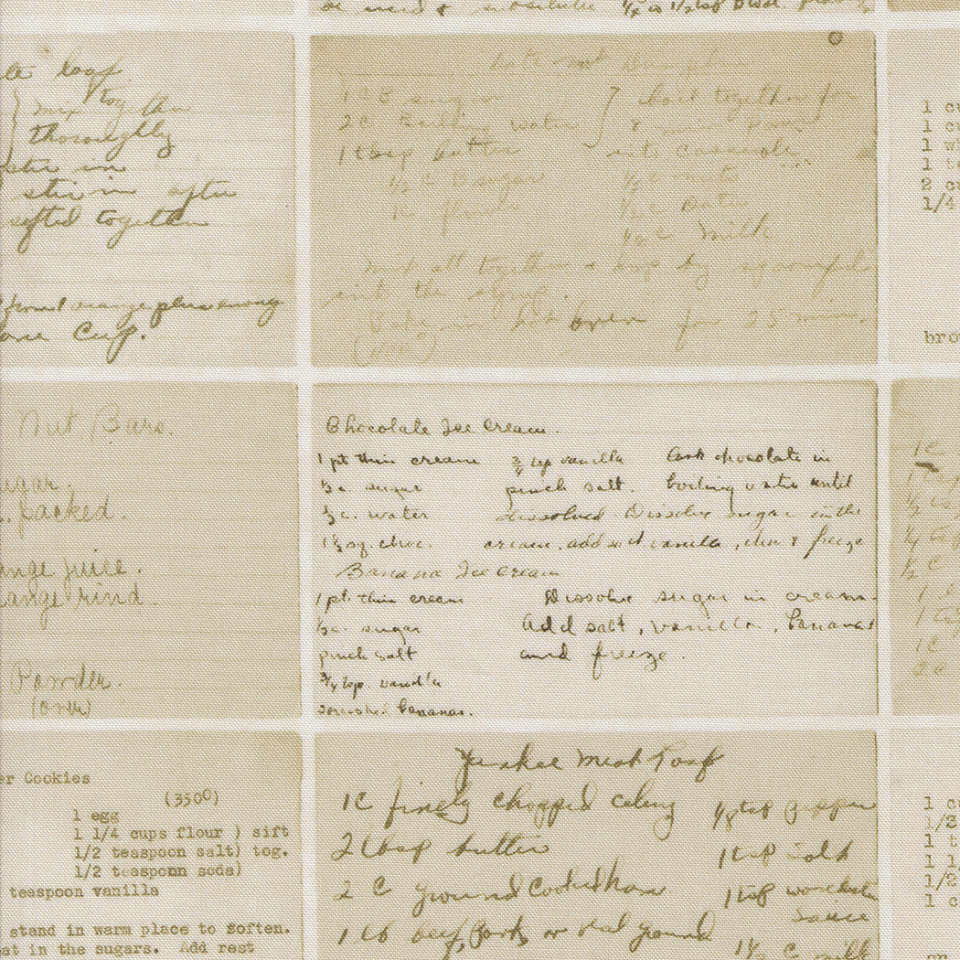 1/2 tsp
le loaf.
mix together
thoroughly
stir in
stir in after
sifted together
one cup.
Date nut Dumplins
1 C B sugar
2 C Boiling water
1 tbsp butter
boil together for
into casserole
1/2 C B sugar
1/2 C nuts
1/2 C Dates
1/2 C Milk
Mix all together & drop by spoonful
into the syrup.
Bake in hot oven for 25 min.
(over)
1 cu
1 cu
1 wh
1 te
2 cu
1/4
bro
Nut Bars.
ugar.
packed.
ange juice.
ange rind.
Powder.
(over)
Chocolate Ice Cream.
1 pt thin cream
3/4 tsp vanilla
Cook chocolate in
sugar
pinch salt.
boiling water until
water
dissolved Dissolve sugar in the
cream. add salt vanilla,
& freeze
Banana Ice Cream
1 pt. thin cream
Dissolve sugar in cream.
sugar
Add salt, vanilla, bananas
pinch salt
and freeze.
3/4 tsp. vanilla
bananas.
1C
1/2
1/4
1/2 C
1
1
1C
2C
er Cookies
(350º)
1 egg
1 1/4 cups flour ) sift
1/2 teaspoon salt) tog.
1/2 teaspoonn soda)
teaspoon vanilla
stand in warm place to soften.
at in the sugars. Add rest
Yankee Meat Loaf
1C finely chopped celery
1/8 tsp pepper
2 tbsp butter
1 tsp salt
2 C ground Cooked ham
1 tsp
sauce
1 lb beef, pork or veal ground
1 1/2 C milk
1 cu
1/3
1 t
1 1/
1/2
1 c